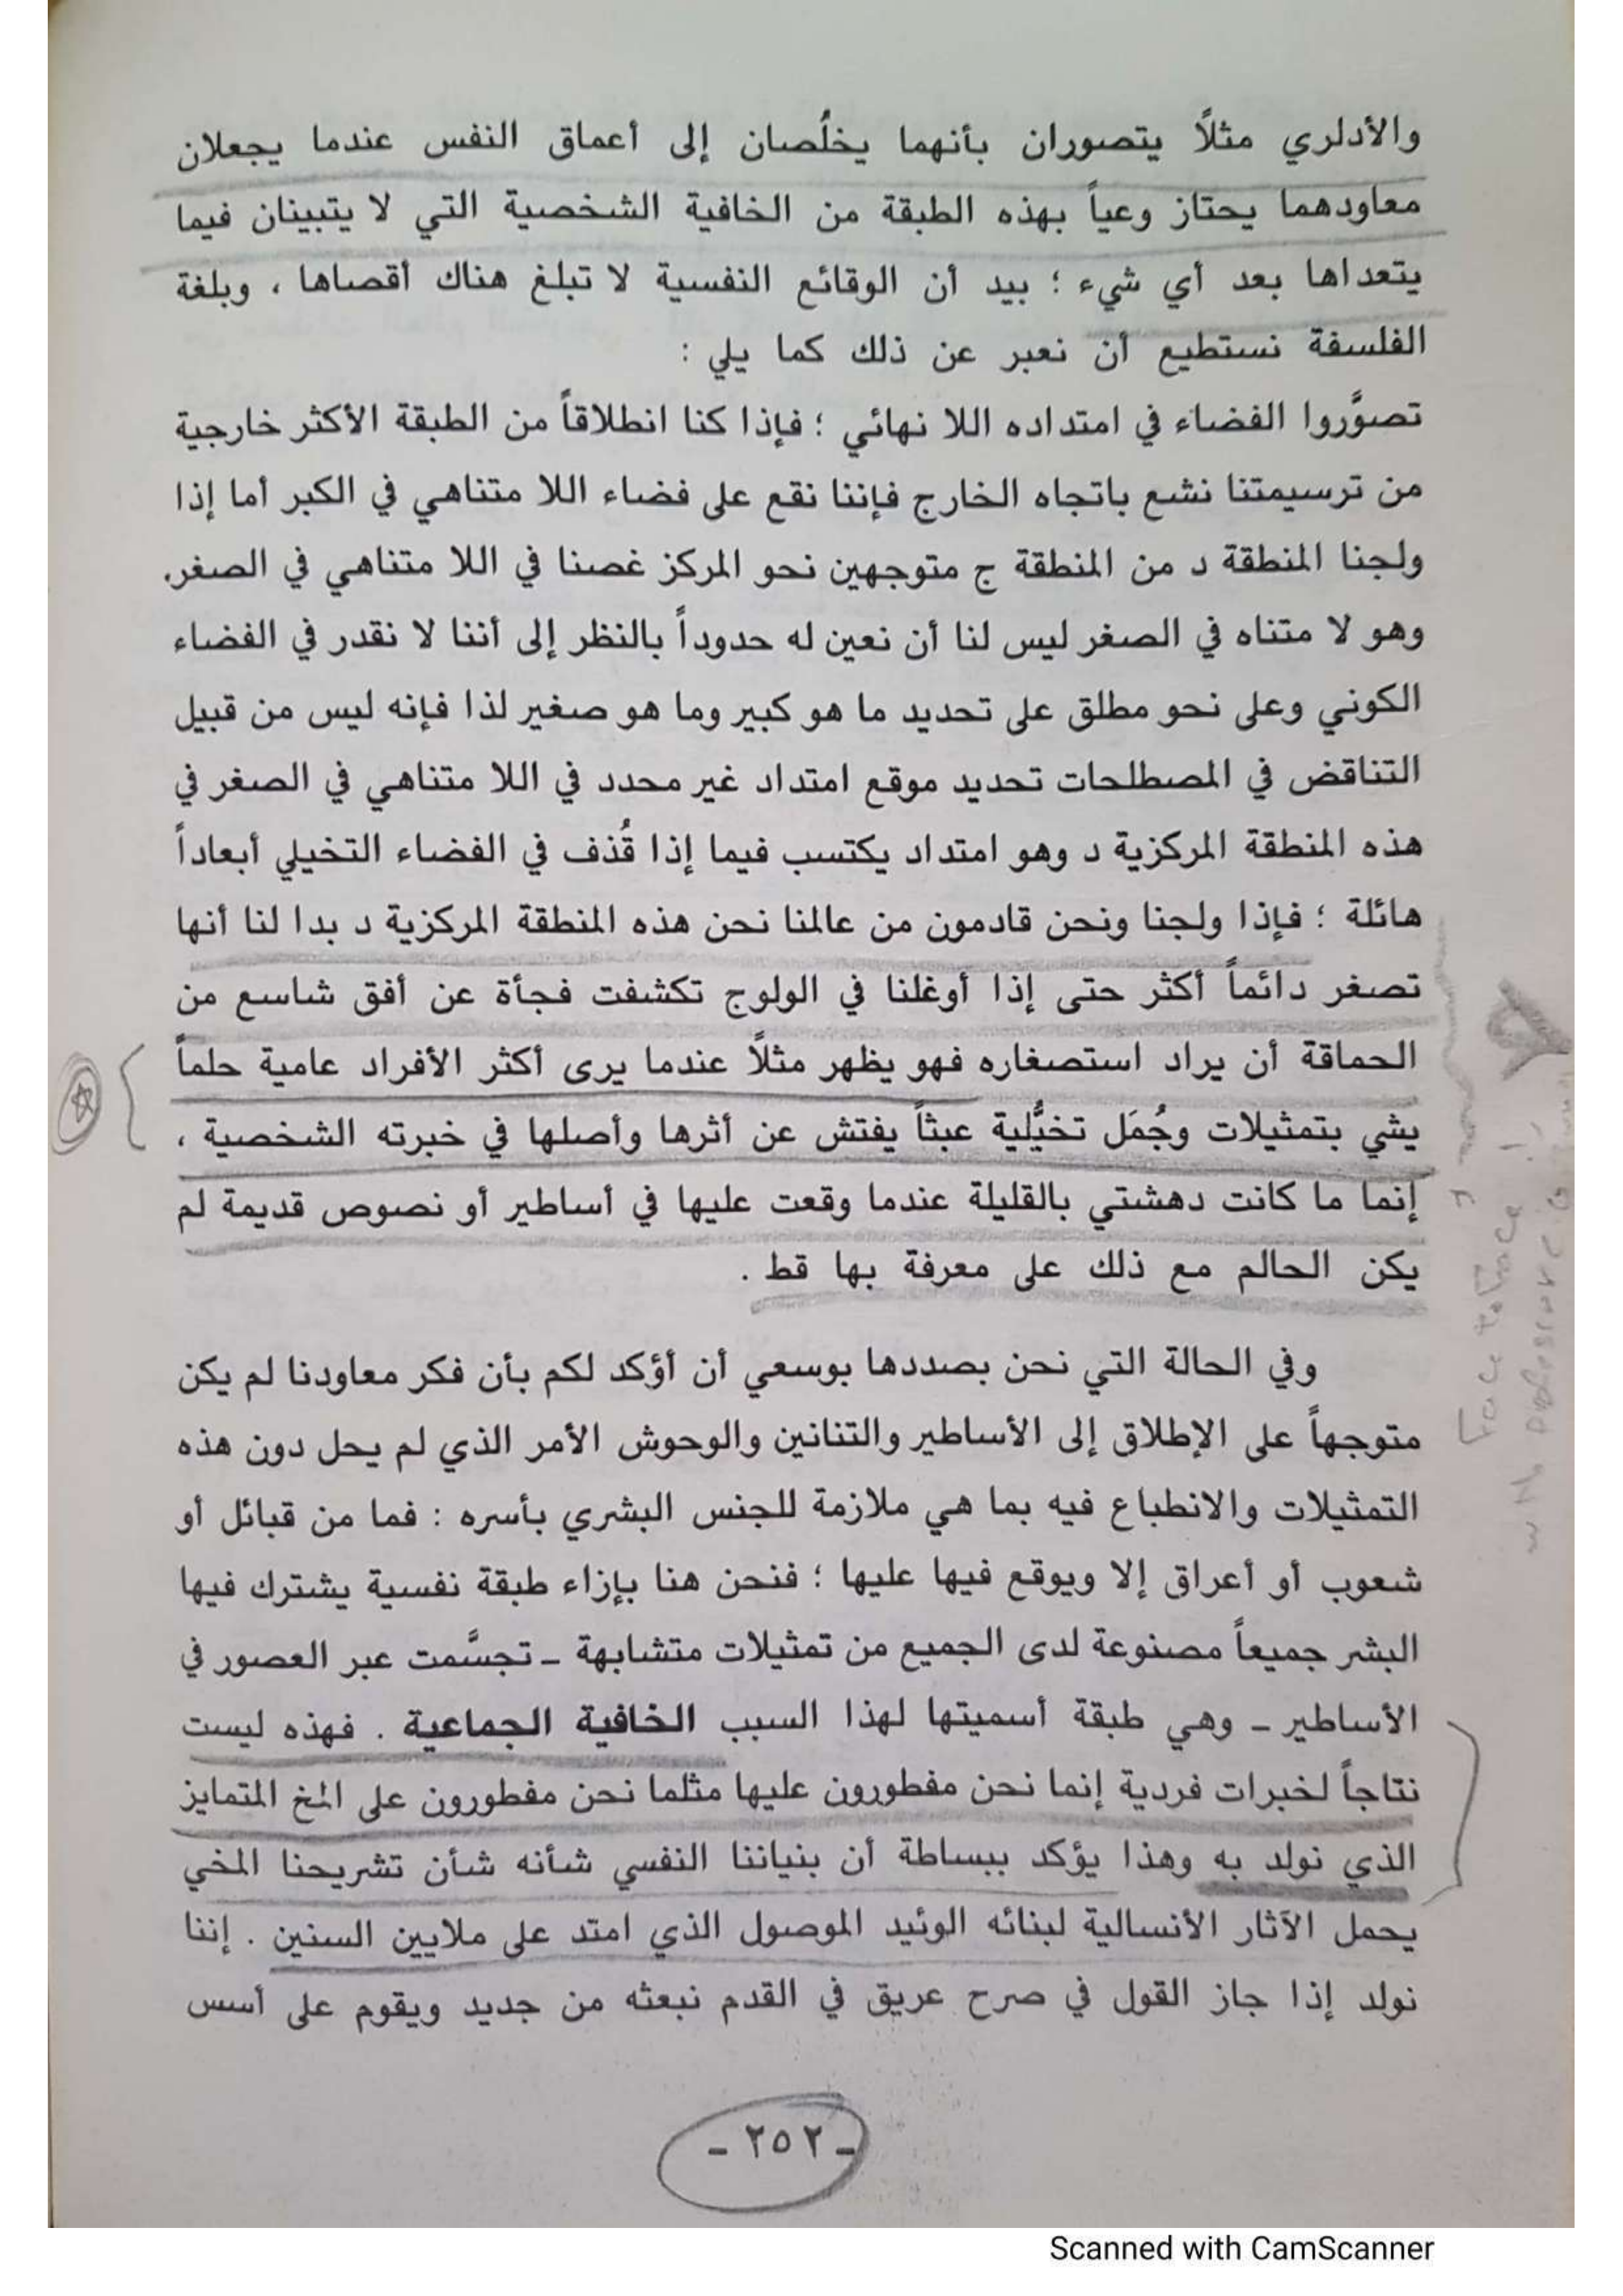 والأدلري مثلاً يتصوران بأنهما يخلُصان إلى أعماق النفس عندما يجعلان
معاودهما يحتاز وعياً بهذه الطبقة من الخافية الشخصية التي لا يتبينان فيما
يتعداها بعد أي شيء ؛ بيد أن الوقائع النفسية لا تبلغ هناك أقصاها ، وبلغة
الفلسفة نستطيع أن نعبر عن ذلك كما يلي :
تصوَّروا الفضاء في امتداده اللا نهائي ؛ فإذا كنا انطلاقاً من الطبقة الأكثر خارجية
من ترسيمتنا نشع باتجاه الخارج فإننا نقع على فضاء اللا متناهي في الكبر أما إذا
ولجنا المنطقة د من المنطقة ج متوجهين نحو المركز غصنا في اللا متناهي في الصغر.
وهو لا متناه في الصغر ليس لنا أن نعين له حدوداً بالنظر إلى أننا لا نقدر في الفضاء
الكوني وعلى نحو مطلق على تحديد ما هو كبير وما هو صغير لذا فإنه ليس من قبيل
التناقض في المصطلحات تحديد موقع امتداد غير محدد في اللا متناهي في الصغر في
هذه المنطقة المركزية د وهو امتداد يكتسب فيما إذا قُذف في الفضاء التخيلي أبعاداً
هائلة ؛ فإذا ولجنا ونحن قادمون من عالمنا نحن هذه المنطقة المركزية د بدا لنا أنها
تصغر دائماً أكثر حتى إذا أوغلنا في الولوج تكشفت فجأة عن أفق شاسع من
الحماقة أن يراد استصغاره فهو يظهر مثلاً عندما يرى أكثر الأفراد عامية حلماً
يشي بتمثيلات وجُمَل تخيُّلية عبثاً يفتش عن أثرها وأصلها في خبرته الشخصية ،
إنما ما كانت دهشتي بالقليلة عندما وقعت عليها في أساطير أو نصوص قديمة لم
يكن الحالم مع ذلك على معرفة بها قط .
وفي الحالة التي نحن بصددها بوسعي أن أؤكد لكم بأن فكر معاودنا لم يكن
متوجهاً على الإطلاق إلى الأساطير والتنانين والوحوش الأمر الذي لم يحل دون هذه
التمثيلات والانطباع فيه بما هي ملازمة للجنس البشري بأسره : فما من قبائل أو
شعوب أو أعراق إلا ويوقع فيها عليها ؛ فنحن هنا بإزاء طبقة نفسية يشترك فيها
البشر جميعاً مصنوعة لدى الجميع من تمثيلات متشابهة ـ تجسَّمت عبر العصور في
الأساطير ـ وهي طبقة أسميتها لهذا السبب الخافية الجماعية . فهذه ليست
نتاجاً لخبرات فردية إنما نحن مفطورون عليها مثلما نحن مفطورون على المخ المتمايز
الذي نولد به وهذا يؤكد ببساطة أن بنياننا النفسي شأنه شأن تشريحنا المخي
يحمل الآثار الأنسالية لبنائه الوئيد الموصول الذي امتد على ملايين السنين . إننا
نولد إذا جاز القول في صرح عريق في القدم نبعثه من جديد ويقوم على أسس
ـ ٢٥٢ ـ
Face to Face !
Scanned with CamScanner